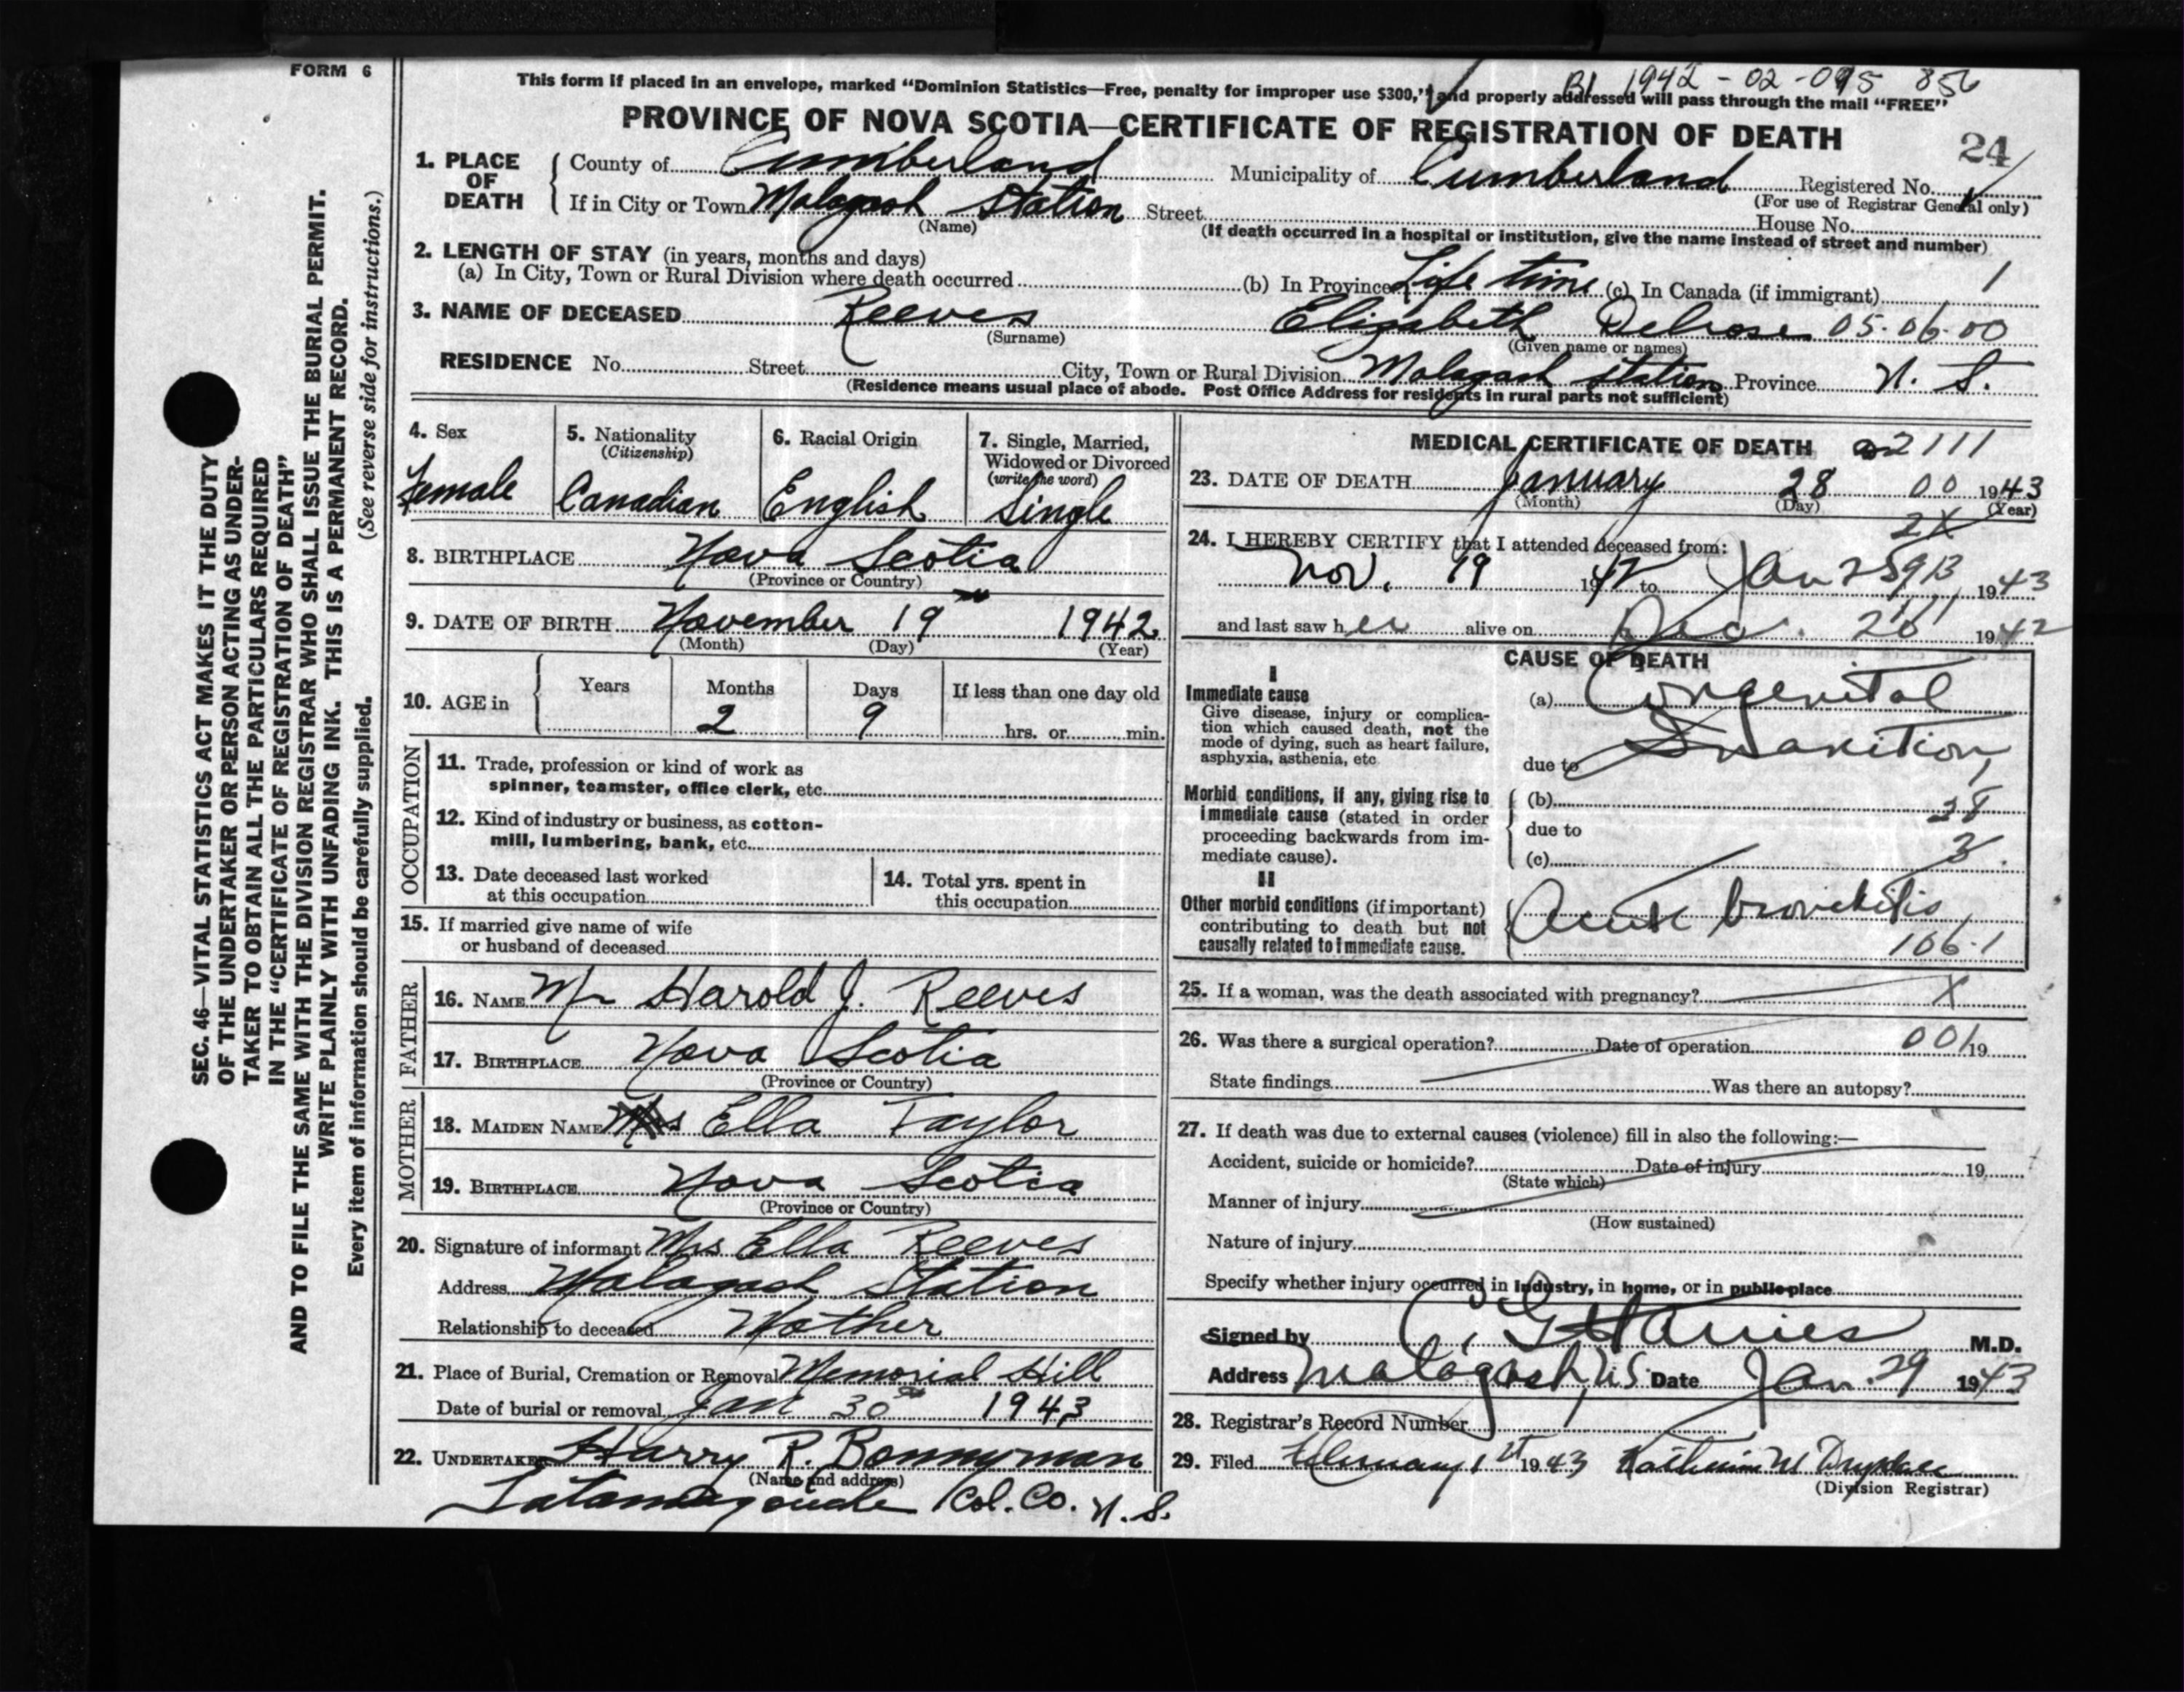 FORM 6
SEC. 46—VITAL STATISTICS ACT MAKES IT THE DUTY
OF THE UNDERTAKER OR PERSON ACTING AS UNDER-
TAKER TO OBTAIN ALL THE PARTICULARS REQUIRED
IN THE "CERTIFICATE OF REGISTRATION OF DEATH"
AND TO FILE THE SAME WITH THE DIVISION REGISTRAR WHO SHALL ISSUE THE BURIAL PERMIT.
WRITE PLAINLY WITH UNFADING INK. THIS IS A PERMANENT RECORD.
Every item of information should be carefully supplied. (See reverse side for instructions.)
1942 - 02 - 095 856
This form if placed in an envelope, marked "Dominion Statistics—Free, penalty for improper use $300," and properly addressed will pass through the mail "FREE"
PROVINCE OF NOVA SCOTIA—CERTIFICATE OF REGISTRATION OF DEATH
24
1. PLACE OF DEATH
County of Cumberland Municipality of Cumberland Registered No.
(For use of Registrar General only)
If in City or Town Malagash Station Street House No.
(Name) (If death occurred in a hospital or institution, give the name instead of street and number)
2. LENGTH OF STAY (in years, months and days)
(a) In City, Town or Rural Division where death occurred (b) In Province Life time (c) In Canada (if immigrant) 1
3. NAME OF DECEASED Reeves Elizabeth Delrose 05-06-00
(Surname) (Given name or names)
RESIDENCE No. Street City, Town or Rural Division Malagash Station Province N. S.
(Residence means usual place of abode. Post Office Address for residents in rural parts not sufficient)
4. Sex Female
5. Nationality (Citizenship) Canadian
6. Racial Origin English
7. Single, Married, Widowed or Divorced (write the word) Single
8. BIRTHPLACE Nova Scotia
(Province or Country)
9. DATE OF BIRTH November 19 1942
(Month) (Day) (Year)
10. AGE in Years Months Days If less than one day old
2 9 hrs. or min.
OCCUPATION
11. Trade, profession or kind of work as
spinner, teamster, office clerk, etc.
12. Kind of industry or business, as cotton-
mill, lumbering, bank, etc.
13. Date deceased last worked
at this occupation
14. Total yrs. spent in
this occupation
15. If married give name of wife
or husband of deceased
FATHER
16. NAME Mr Harold J. Reeves
17. BIRTHPLACE Nova Scotia
(Province or Country)
MOTHER
18. MAIDEN NAME Ella Taylor
19. BIRTHPLACE Nova Scotia
(Province or Country)
20. Signature of informant Mrs Ella Reeves
Address Malagash Station
Relationship to deceased Mother
21. Place of Burial, Cremation or Removal Memorial Hill
Date of burial or removal Jan 30 1943
22. UNDERTAKER Harry R. Bonnyman
(Name and address)
Tatamagouche Col. Co. N. S.
MEDICAL CERTIFICATE OF DEATH 2111
23. DATE OF DEATH January 28 00 1943
(Month) (Day) (Year)
2X
24. I HEREBY CERTIFY that I attended deceased from:
Nov. 19 1942 to Jan 1943
and last saw her alive on Dec. 26 1942
CAUSE OF DEATH
I
Immediate cause
Give disease, injury or complica-
tion which caused death, not the
mode of dying, such as heart failure,
asphyxia, asthenia, etc
(a) Congenital
due to Inanition
Morbid conditions, if any, giving rise to
immediate cause (stated in order
proceeding backwards from im-
mediate cause).
(b)
due to
(c) 3
II
Other morbid conditions (if important)
contributing to death but not
causally related to immediate cause.
Acute bronchitis
106.1
25. If a woman, was the death associated with pregnancy? X
26. Was there a surgical operation? Date of operation 001 19
State findings Was there an autopsy?
27. If death was due to external causes (violence) fill in also the following:—
Accident, suicide or homicide? Date of injury 19
(State which)
Manner of injury
(How sustained)
Nature of injury
Specify whether injury occurred in industry, in home, or in public place
Signed by C. G. Harries M.D.
Address Malagash, N.S. Date Jan. 29 1943
28. Registrar's Record Number
29. Filed February 1st 1943 W Drysdale
(Division Registrar)